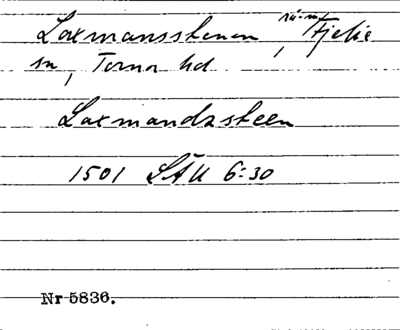 Laxmansstenen, rå-m, Fjelie
sn, Torna hd
Laxmandzsteen
1501 LÄU 6:30
Nr 5836.